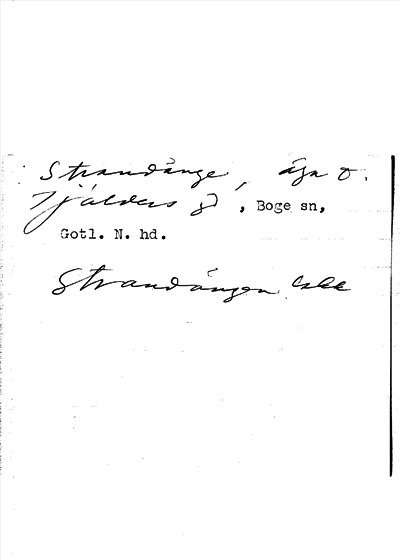 Strandänge, äga o.
Tjälders gd, Boge sn,
Gotl. N. hd.
Strandängen